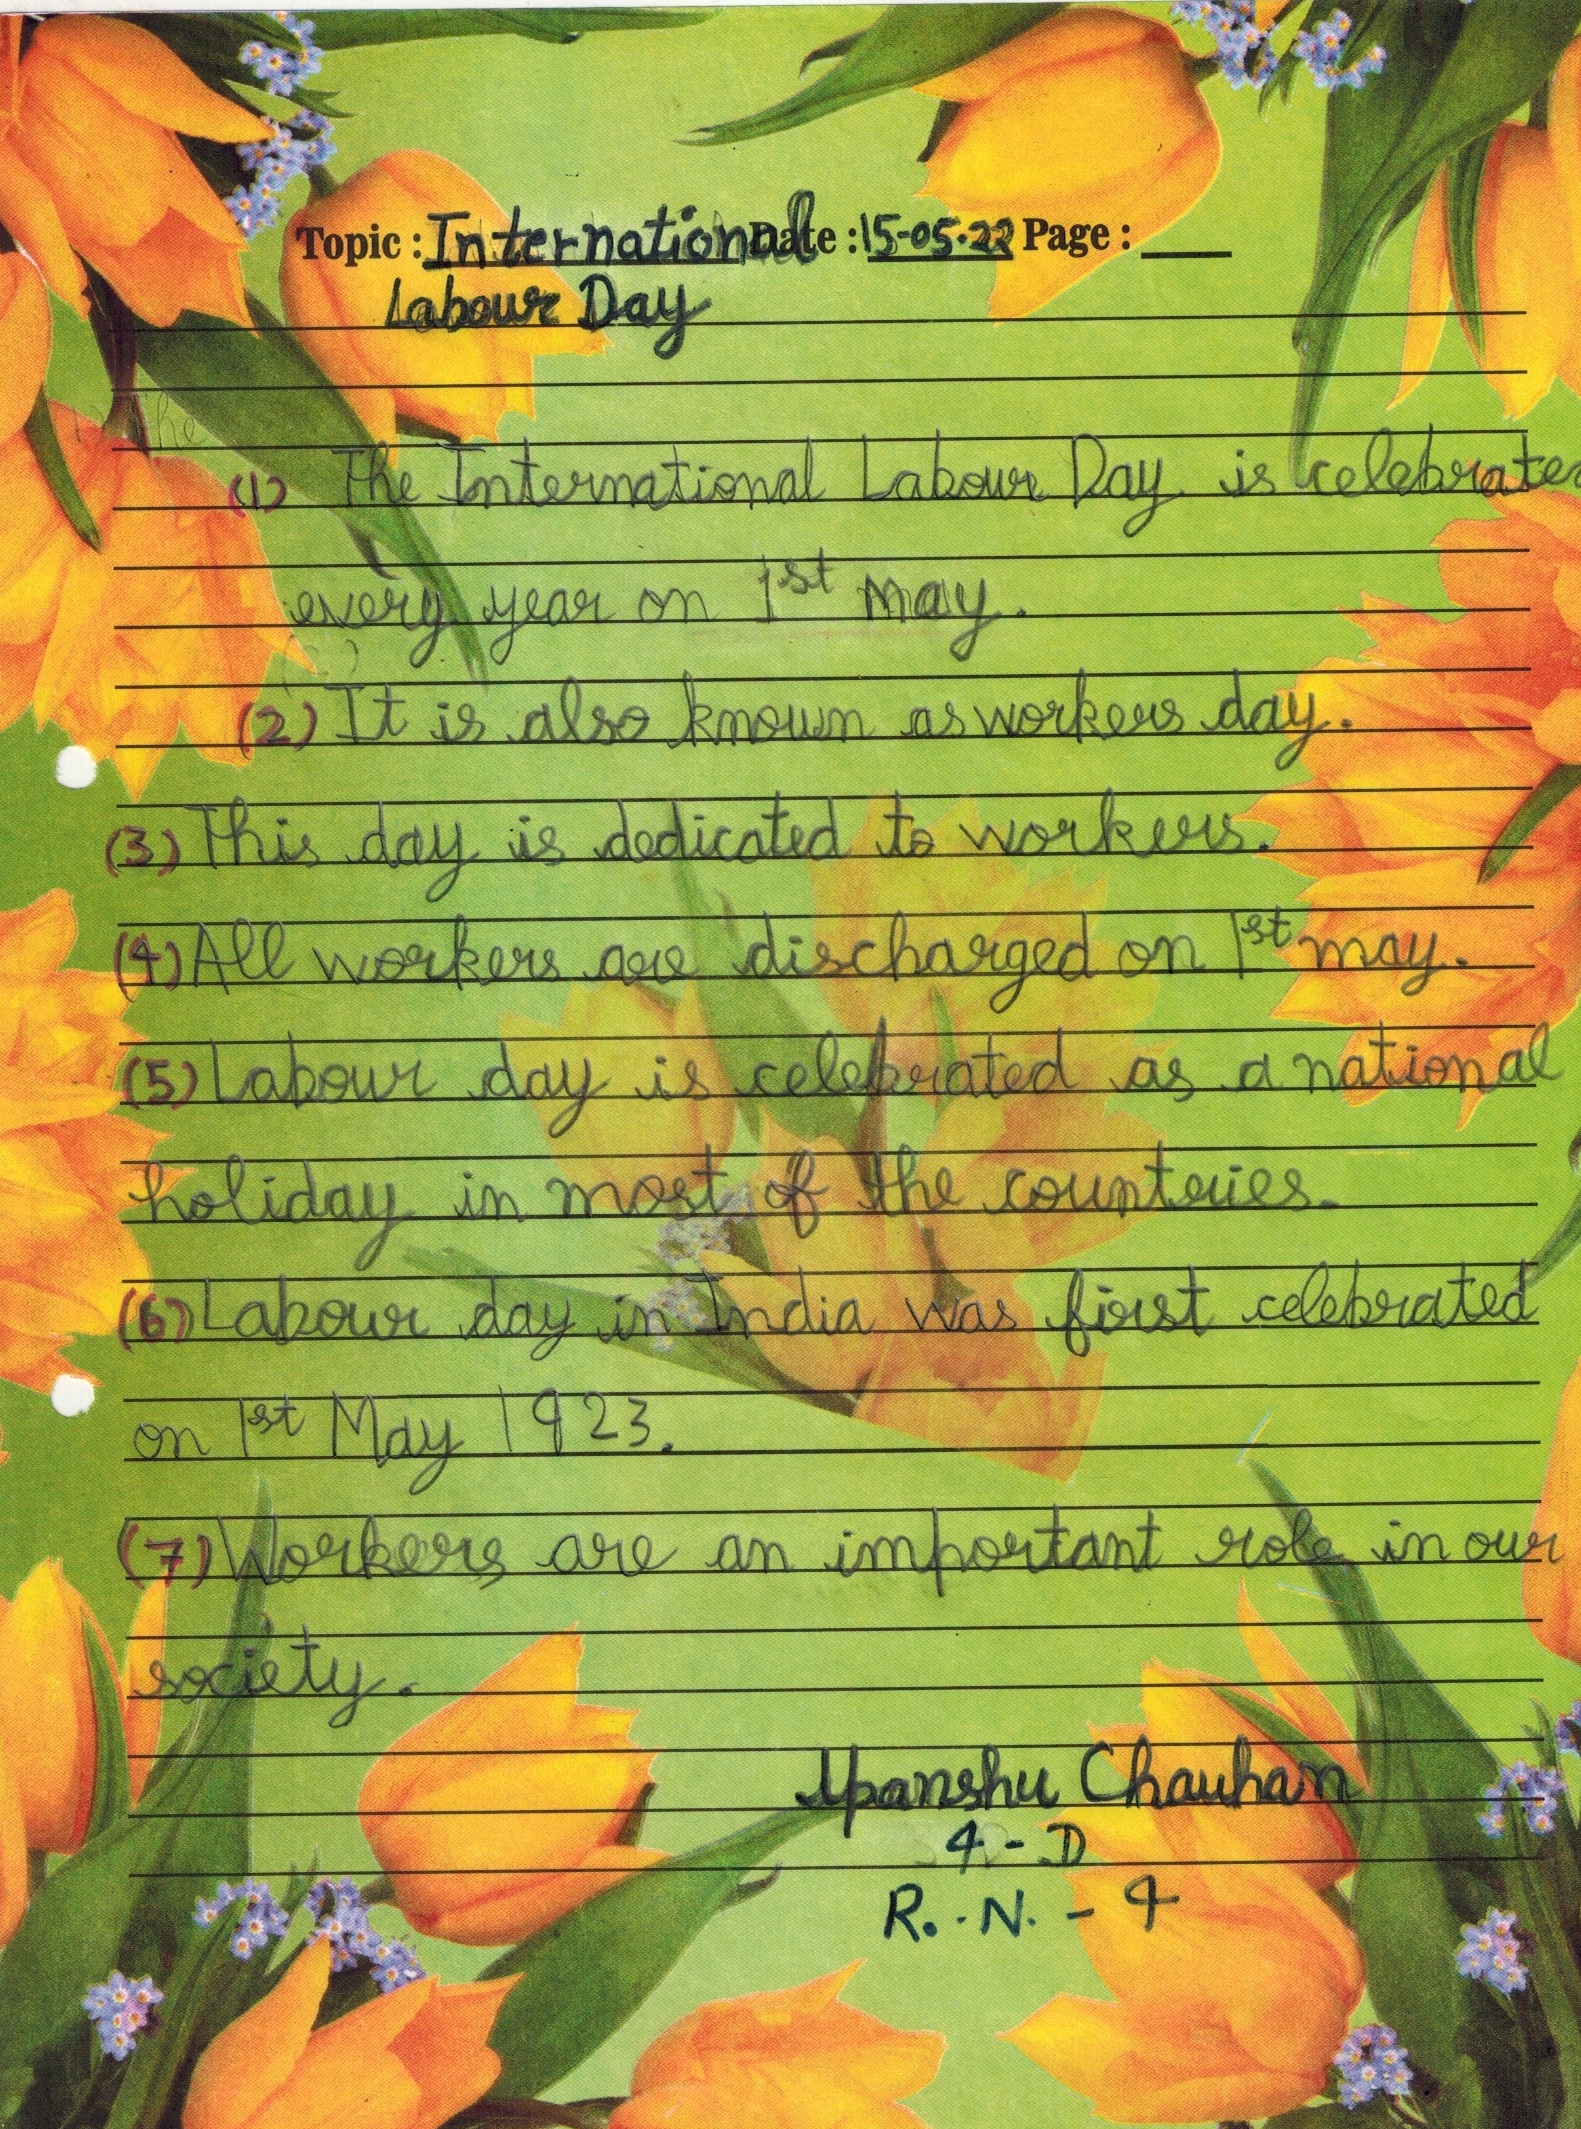 Topic : International Date : 15-05-22 Page :
Labour Day
(1) The International Labour Day is celebrated
every year on 1st may.
(2) It is also known as workers day.
(3) This day is dedicated to workers.
(4) All workers are discharged on 1st may.
(5) Labour day is celebrated as a national
holiday in most of the counteries.
(6) Labour day in India was first celebrated
on 1st May 1923.
(7) Workers are an important role in our
society.
Upanshu Chauhan
4 - D
R. . N. - 4